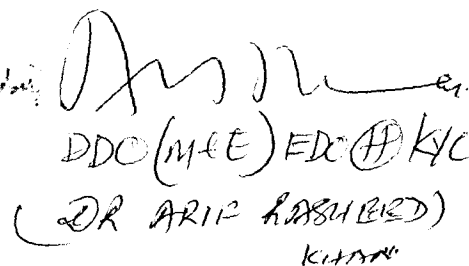 DDO (M&E) EDO (H) KYC
(DR ARIF RASHEED)
KHAN